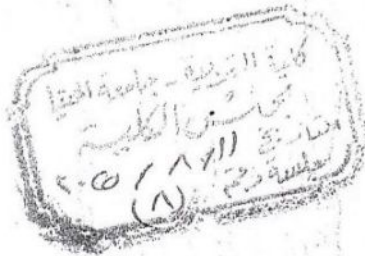 كلية التربية - جامعة المنيا
مجلس الكلية
بتاريخ ١١/٨/٢٠٢٥
بجلسة رقم (٨)